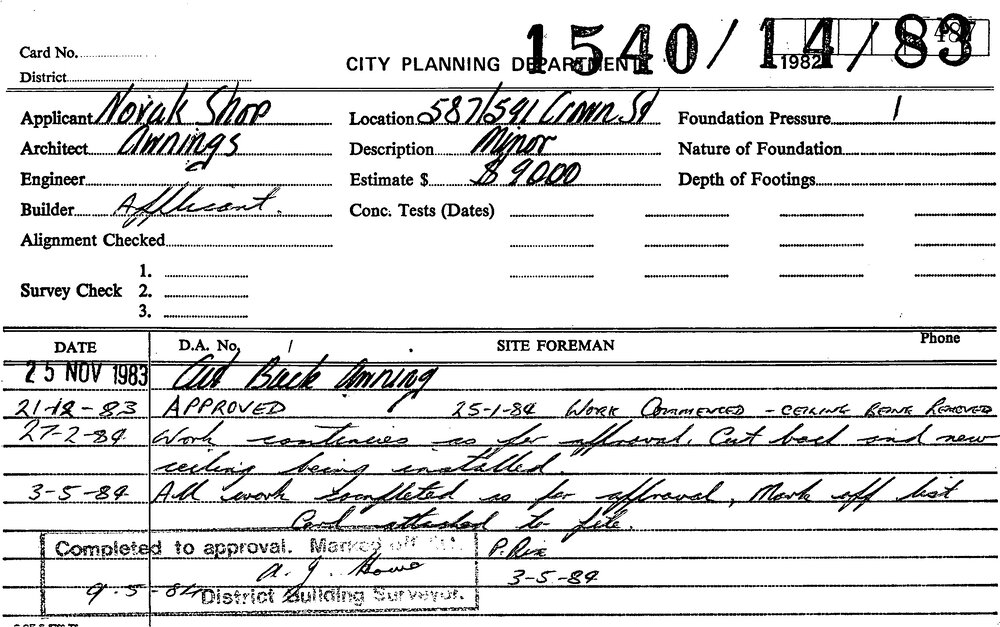 Card No.
1540/14/83
CITY PLANNING DEPARTMENT
1982
487
District
Applicant Novak Shop
Location 587/591 Crown St
Foundation Pressure 1
Architect Awnings
Description Minor
Nature of Foundation
Engineer
Estimate $ $ 9000
Depth of Footings
Builder Applicant.
Conc. Tests (Dates)
Alignment Checked
1.
Survey Check 2.
3.
DATE D.A. No. / . SITE FOREMAN Phone
25 NOV 1983 Cut Back Awning
21-12-83 APPROVED 25-1-84 WORK COMMENCED - CEILING BEING REMOVED
27-2-84 Work continues as per approval. Cut back and new
ceiling being installed.
3-5-84 All work completed as per approval, Mark off list
Card attached to file.
Completed to approval. Marked off
P. Rix
A. J. Howe
3-5-84
9-5-84 District Building Surveyor.